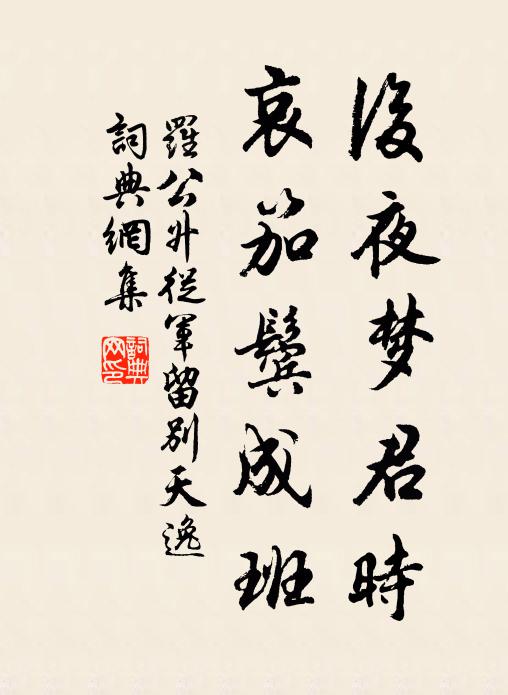 後夜梦君時
哀笳鬓成班
羅公升從軍留别天逸
詞典網集
詞典网印